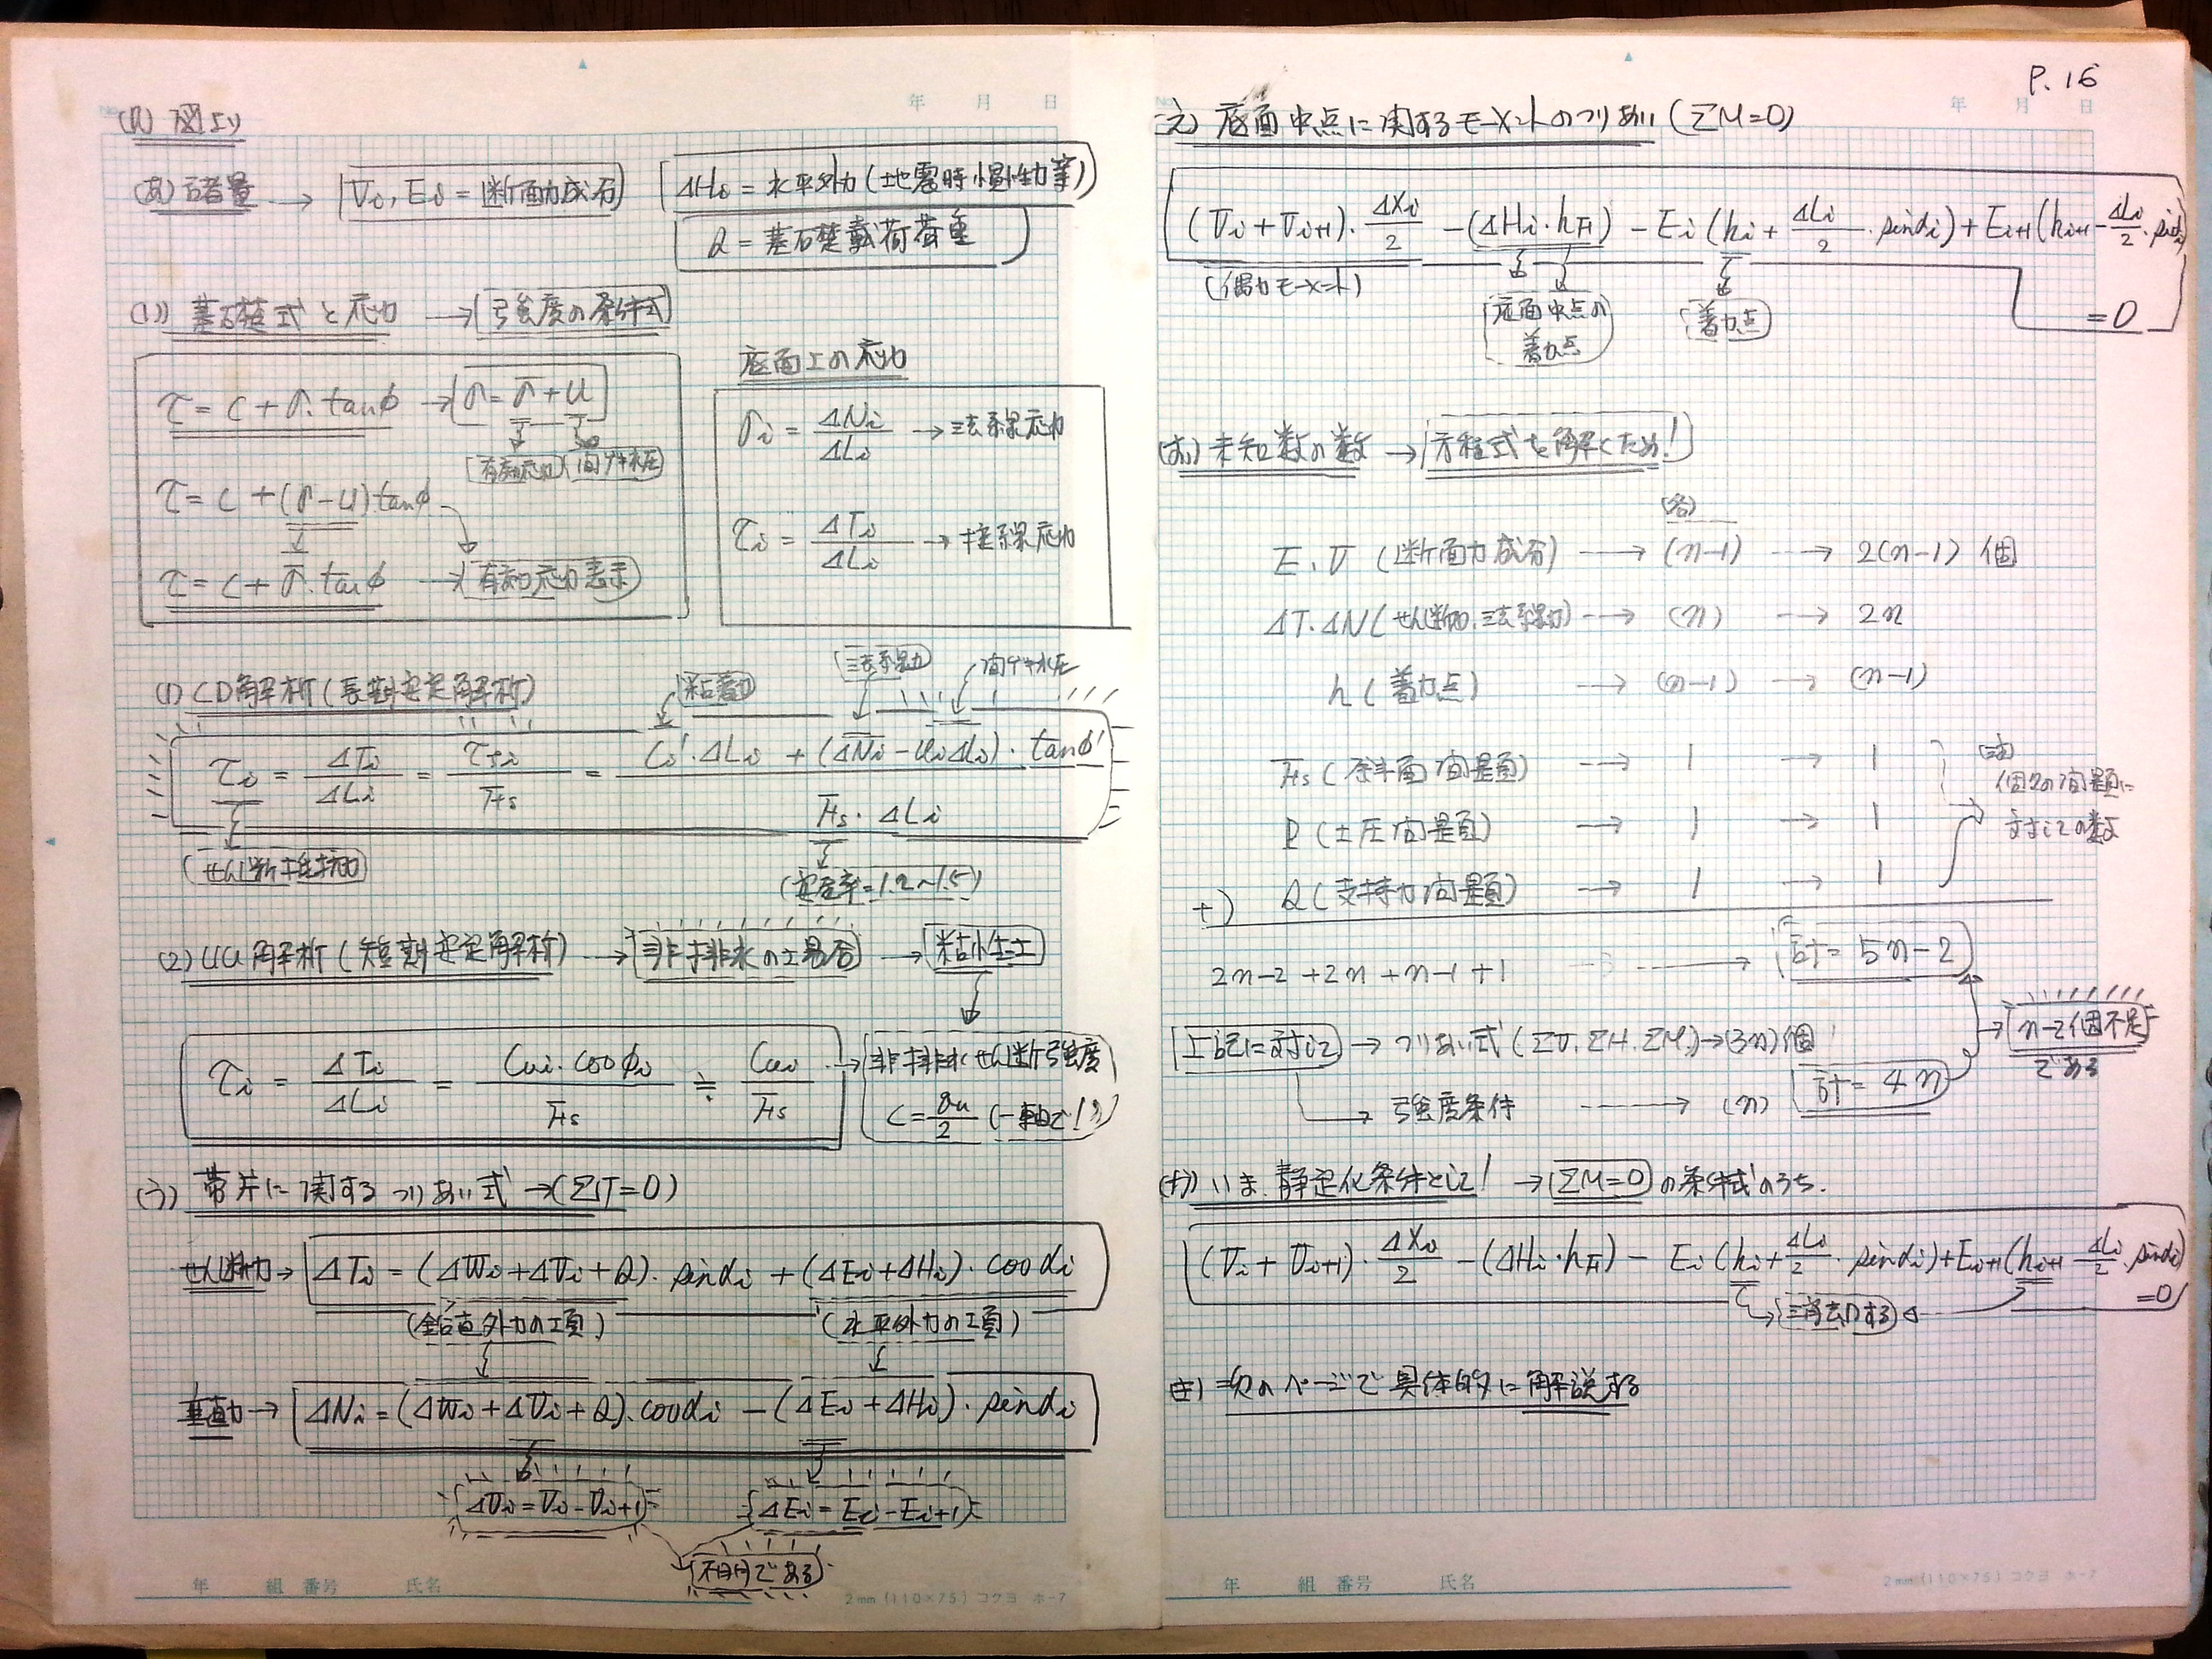 図より
(あ) 諸量 → Vi, Ei = 断面力成分
ΔHi = 水平外力(地震時慣性力等)
Q = 基礎載荷荷重
(い) 基礎式と応力 → 強度の条件式
τ = c + σ・tanφ → σ = σ̄ + u
有効応力 間ゲキ水圧
τ = c + (σ - u) tanφ
τ = c + σ̄・tanφ → 有効応力表示
底面上の応力
σi = ΔNi / ΔLi → 法線応力
τi = ΔTi / ΔLi → 接線応力
(1) CD解析(長期安定解析)
粘着力 法線力 間ゲキ水圧
τi = ΔTi / ΔLi = τfi / Fs = Ci'・ΔLi + (ΔNi - uiΔLi)・tanφ' / Fs・ΔLi
せん断抵抗力
(安全率=1.2~1.5)
(2) UU解析(短期安定解析) → 非排水の土場合 → 粘性土
τi = ΔTi / ΔLi = Cui・cosφi / Fs ≒ Cui / Fs → 非排水せん断強度
C = qu / 2 (一軸で!)
(う) 帯片に関するつりあい式 → (ΣT=0)
せん断力 → ΔTi = (ΔWi + ΔVi + Q)・sinαi + (ΔEi + ΔHi)・cosαi
(鉛直外力の項) (水平外力の項)
垂直力 → ΔNi = (ΔWi + ΔVi + Q)・cosαi - (ΔEi + ΔHi)・sinαi
ΔVi = Vi - Vi+1 ΔEi = Ei - Ei+1
不明である
年 組 番号 氏名
2mm (110×75) コクヨ ホ-7
P. 16
年 月 日
え) 底面中点に関するモーメントのつりあい (ΣM=0)
(Vi + Vi+1)・ΔXi / 2 - (ΔHi・hFi) - Ei (hi + ΔLi / 2・sinαi) + Ei+1 (hi+1 - ΔLi / 2・sinαi)
= 0
(偶力モーメント)
底面中点の
着力点
着力点
(お) 未知数の数 → 方程式を解くため!
(各)
E, V (断面力成分) → (n-1) → 2(n-1) 個
ΔT・ΔN (せん断力, 法線力) → (n) → 2n
h (着力点) → (n-1) → (n-1)
Fs (斜面問題) → 1 → 1
P (土圧問題) → 1 → 1
個々の問題に
対しての数
+) Q (支持力問題) → 1 → 1
2n-2 + 2n + n-1 + 1 → 計 = 5n-2
上記に対して → つりあい式 (ΣV, ΣH, ΣM) → (3n) 個
n-2個不足
である
計 = 4n
強度条件 → (n)
(か) いま、静定化条件として! → ΣM=0 の条件式のうち、
(Vi + Vi+1)・ΔXi / 2 - (ΔHi・hFi) - Ei (hi + ΔLi / 2・sinαi) + Ei+1 (hi+1 - ΔLi / 2・sinαi)
= 0
消去する
注) 次のページで具体的に解説する
年 組 番号 氏名
2mm (110×75) コクヨ ホ-7